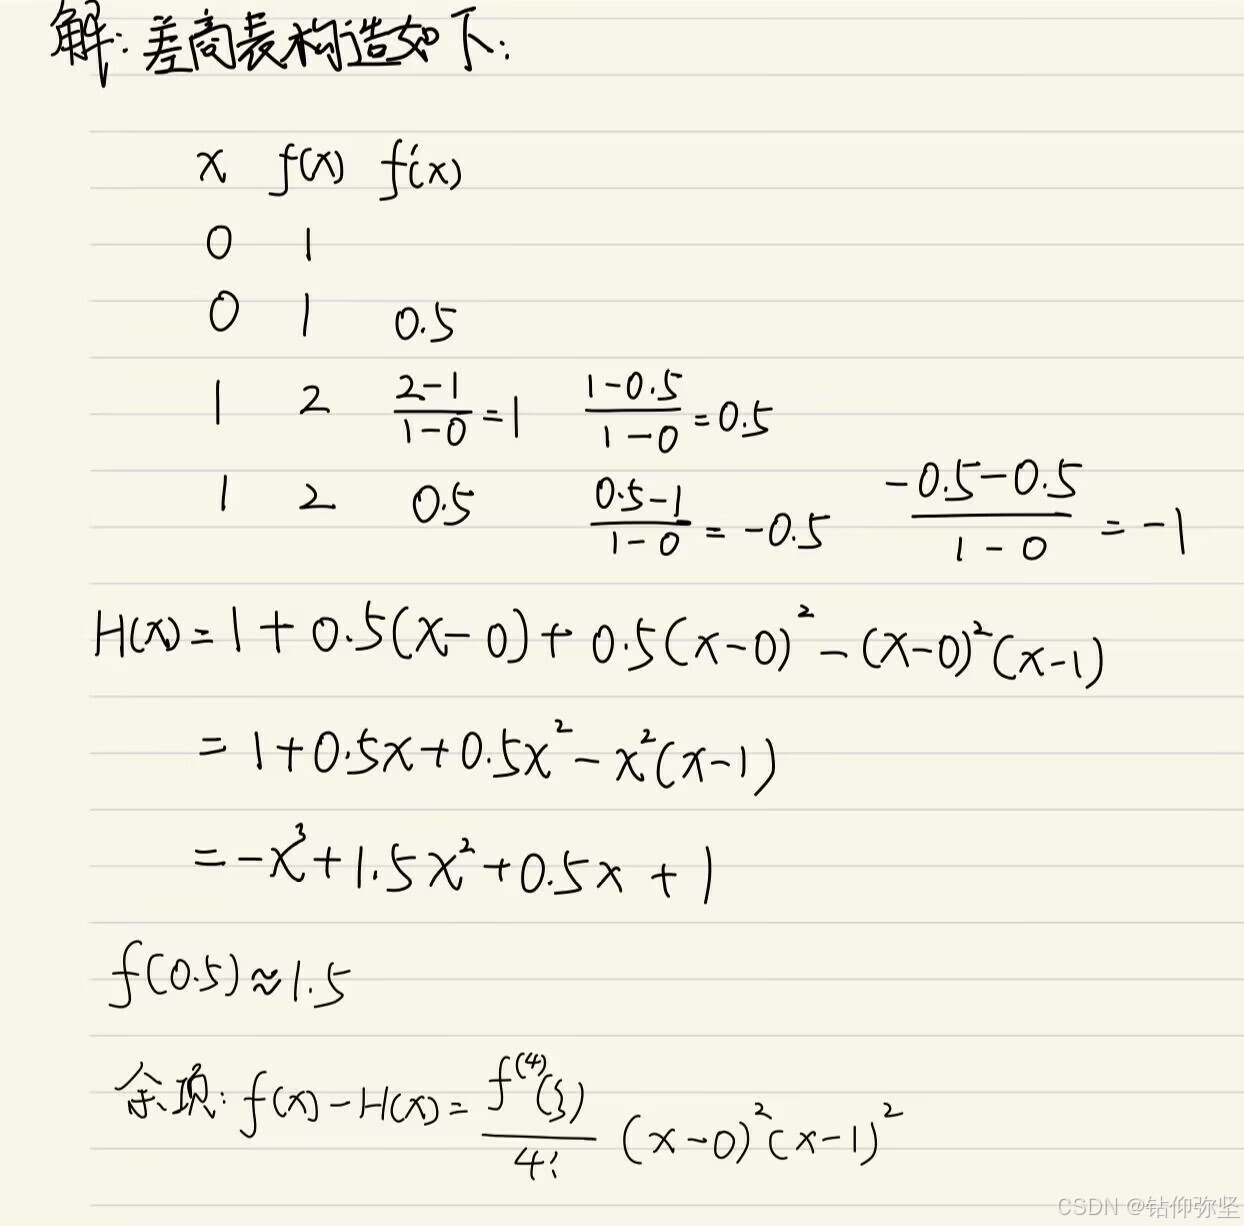 解：差商表构造如下：
x f(x) f'(x)
0 1
0 1 0.5
1 2 \frac{2-1}{1-0}=1 \frac{1-0.5}{1-0}=0.5
1 2 0.5 \frac{0.5-1}{1-0}=-0.5 \frac{-0.5-0.5}{1-0}=-1
H(x)=1+0.5(x-0)+0.5(x-0)²-(x-0)²(x-1)
=1+0.5x+0.5x²-x²(x-1)
=-x³+1.5x²+0.5x+1
f(0.5)≈1.5
余项：f(x)-H(x)=\frac{f^{(4)}(ξ)}{4!}(x-0)²(x-1)²
CSDN @钻仰弥坚